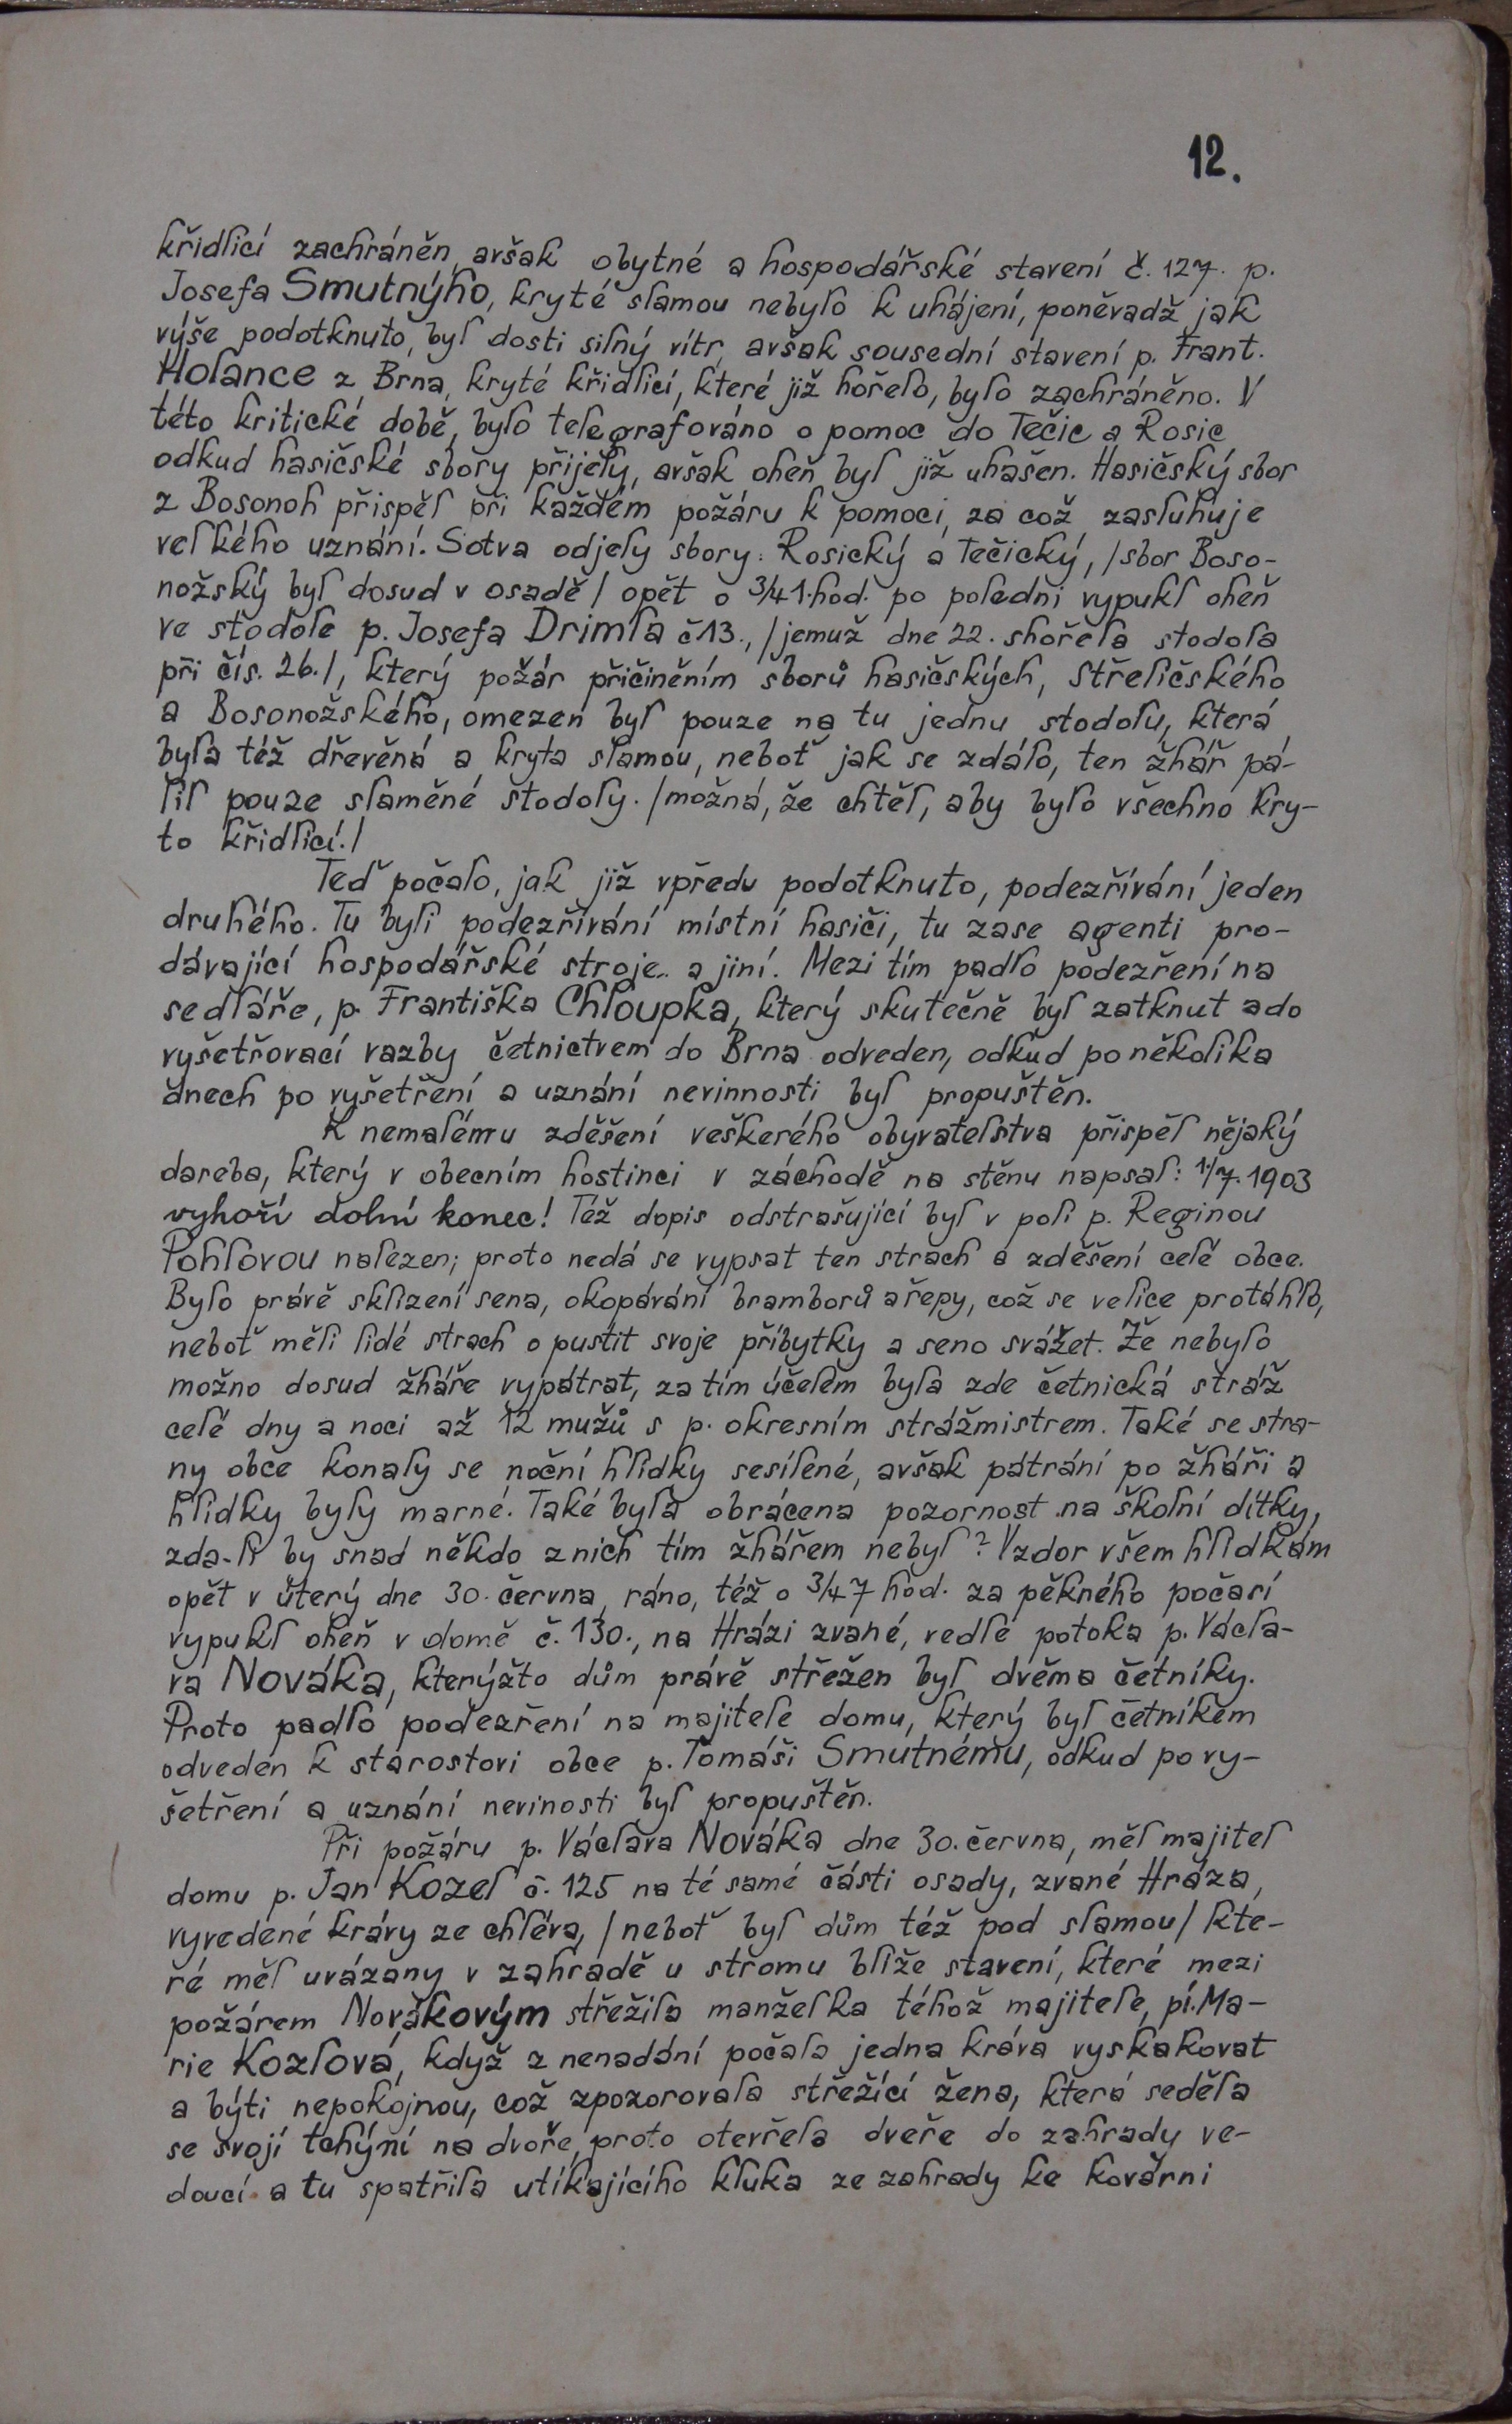 12.
křidlicí zachráněn, avšak obytné a hospodářské stavení č. 127. p.
Josefa Smutnýho, kryté slamou nebylo k uhájení, poněvadž jak
výše podotknuto, byl dosti silný vítr, avšak sousední stavení p. Frant.
Holance z Brna, kryté křidlicí, které již hořelo, bylo zachráněno. V
této kritické době, bylo telegrafováno o pomoc do Tečic a Rosic
odkud hasičské sbory přijely, avšak oheň byl již uhašen. Hasičský sbor
z Bosonoh přispěl při každém požáru k pomoci, za což zasluhuje
velkého uznání. Sotva odjely sbory: Rosický a Tečický, /sbor Boso-
nožský byl dosud v osadě/ opět o 3/4 1. hod. po poledni vypukl oheň
ve stodole p. Josefa Drimla č 13., /jemuž dne 22. shořela stodola
při čís. 26./, který požár přičiněním sborů hasičských, Střeličského
a Bosonožského, omezen byl pouze na tu jednu stodolu, která
byla též dřevěná a kryta slamou, neboť jak se zdálo, ten žhář pá-
lil pouze slaměné stodoly. /možná, že chtěl, aby bylo všechno kry-
to křidlicí./
Teď počalo, jak již vpředu podotknuto, podezřívání jeden
druhého. Tu byli podezřívání místní hasiči, tu zase agenti pro-
dávající hospodářské stroje.. a jiní. Mezi tím padlo podezření na
sedláře, p. Františka Chloupka, který skutečně byl zatknut a do
vyšetřovací vazby četnictvem do Brna odveden, odkud po několika
dnech po vyšetření a uznání nevinnosti byl propuštěn.
K nemalému zděšení veškerého obyvatelstva přispěl nějaký
dareba, který v obecním hostinci v záchodě na stěnu napsal: 1/7. 1903
vyhoří dolní konec! Též dopis odstrašující byl v poli p. Reginou
Pohlovou nalezen; proto nedá se vypsat ten strach a zděšení celé obce.
Bylo právě sklizení sena, okopávání bramborů a řepy, což se velice protáhlo,
neboť měli lidé strach opustit svoje příbytky a seno svážet. Že nebylo
možno dosud žháře vypátrat, za tím účelem byla zde četnická stráž
celé dny a noci až 12 mužů s p. okresním strážmistrem. Také se stra-
ny obce konaly se noční hlídky sesílené, avšak pátrání po žháři a
hlídky byly marné. Také byla obrácena pozornost na školní dítky,
zda-li by snad někdo z nich tím žhářem nebyl? Vzdor všem hlídkám
opět v úterý dne 30. června, ráno, též o 3/4 7 hod. za pěkného počasí
vypukl oheň v domě č. 130., na Hrázi zvané, vedle potoka p. Václa-
va Nováka, kterýžto dům právě střežen byl dvěma četníky.
Proto padlo podezření na majitele domu, který byl četníkem
odveden k starostovi obce p. Tomáši Smutnému, odkud po vy-
šetření a uznání nevinosti byl propuštěn.
Při požáru p. Václava Nováka dne 30. června, měl majitel
domu p. Jan Kozel č. 125 na té samé části osady, zvané Hráza,
vyvedené krávy ze chléva, /neboť byl dům též pod slamou/ kte-
ré měl uvázany v zahradě u stromu blíže stavení, které mezi
požárem Novákovým střežila manželka téhož majitele, pí. Ma-
rie Kozlová, když z nenadání počala jedna kráva vyskakovat
a býti nepokojnou, což zpozorovala střežící žena, která seděla
se svojí tchýní na dvoře, proto otevřela dveře do zahrady ve-
doucí a tu spatřila utíkajícího kluka ze zahrady ke kovárni